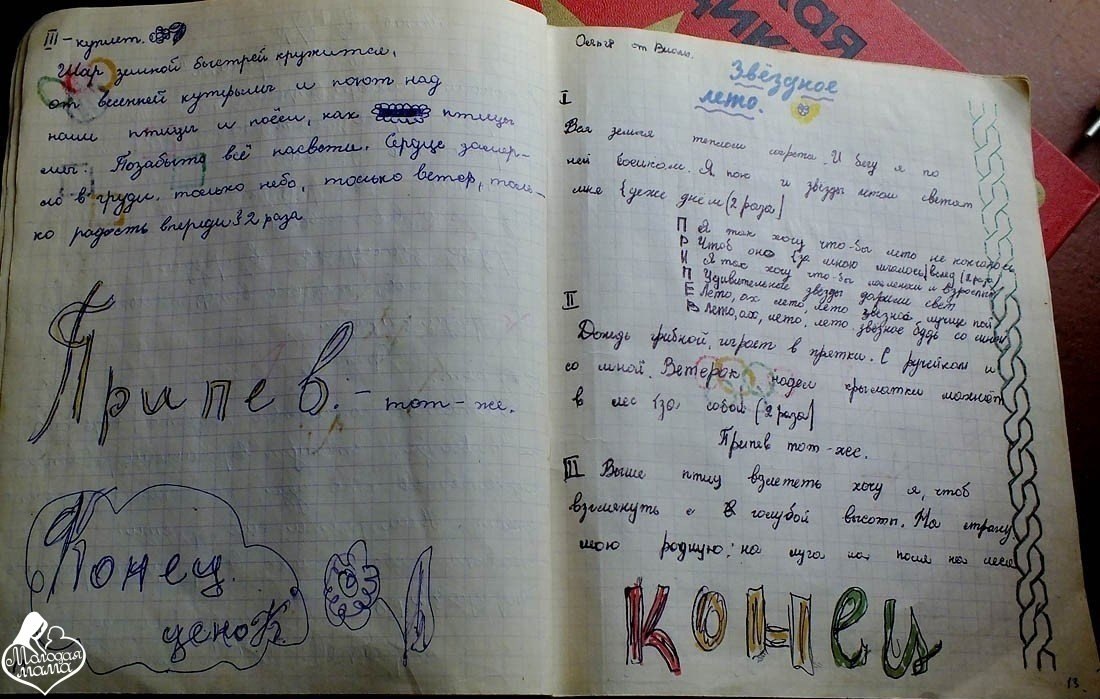 III - куплет.
Шар земной быстрей кружится,
от весенней кутерьмы и поют над
нами птицы и поём, как птицы
мы. Позабыто всё насвети. Сердце замер-
ло в груди. только небо, только ветер, толь-
ко радость впереди } 2 раза
Припев. - тот - же.
Конец.
ценоК.
от
Звёздное
лето.
I
Вся земля теплом согрета. И бегу я по
ней босиком. Я пою и звёзды летом светят
мне {даже днём (2 раза)
ПРИПЕВ
Я так хочу что-бы лето не кончалось
Чтоб оно {за мною мчалось} вслед (2 раза)
Я так хочу что-бы маленьки и взрослым
Удивительные звёзды дарили свет
Лето, ах лето, лето звёздное, лучше пой
Лето, ах, лето, лето звёздное будь со мной
II
Дождь грибной, играет в прятки. С ручейком и
со мной. Ветерок надел крылатки
в лес {за собой (2 раза)
Припев тот-же.
III Выше птиц взлететь хочу я, чтоб
взглянуть с В голубой высоты. На страну
мою родную: на луга на поля на леса
конец
13
Молодая
мама
КАЯ